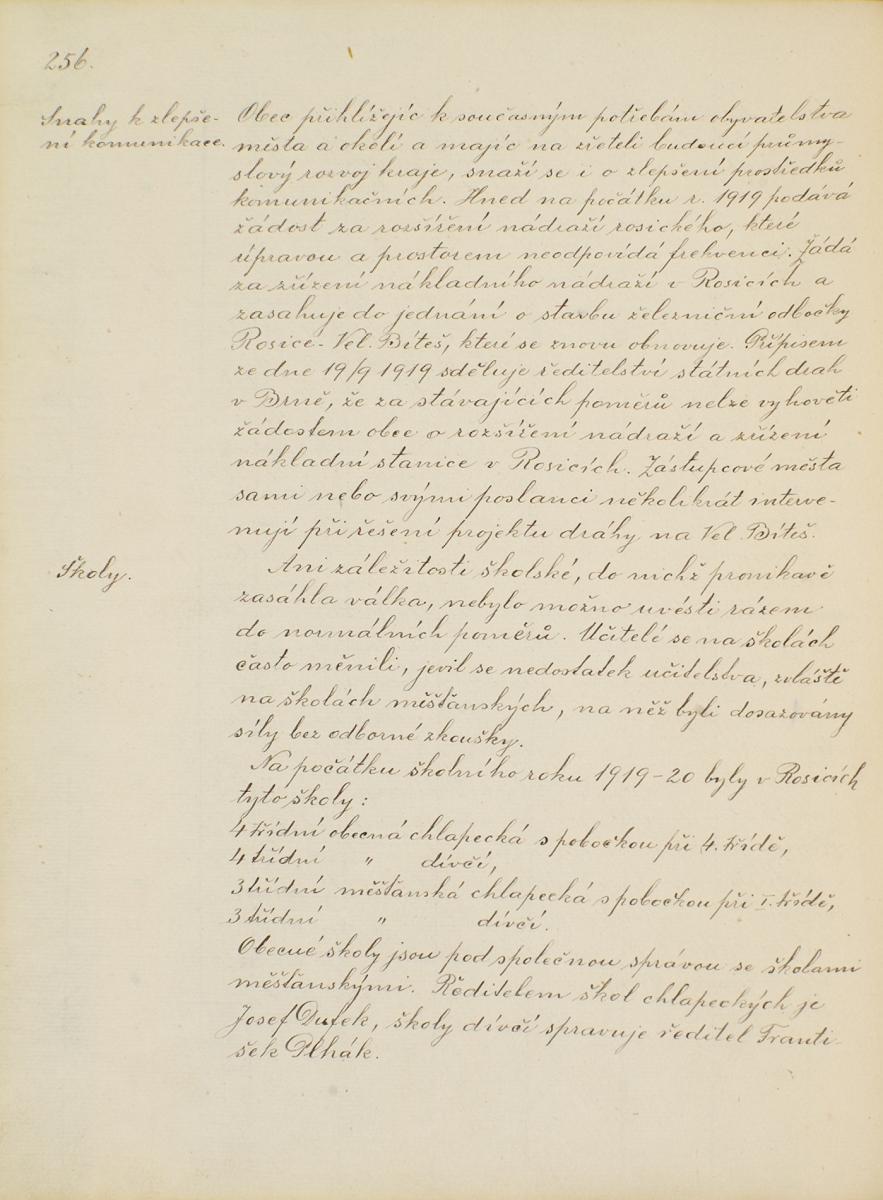 256.
Snahy k zlepše-
ní komunikace.
Obec přihlížejíc k současným potřebám obyvatelstva
města a okolí a majíc na zřeteli budoucí průmy-
slový rozvoj kraje, snaží se i o zlepšení prostředků
komunikačních. Hned na počátku r. 1919 podává
žádost za rozšíření nádraží rosického, které
úpravou a prostorem neodpovídá frekvenci. Žádá
za zřízení nákladního nádraží v Rosicích a
zasahuje do jednání o stavbu železniční odbočky
Rosice - Vel. Bíteš, které se znovu obnovuje. Přípisem
ze dne 19/9 1919 sděluje ředitelství státních drah
v Brně, že za stávajících poměrů nelze vyhověti
žádostem obce o rozšíření nádraží a zřízení
nákladní stanice v Rosicích. Zástupcové města
sami nebo svými poslanci několikrát interve-
nují při řešení projektu dráhy na Vel. Bíteš.
Školy.
Ani záležitosti školské, do nichž pronikavě
zasáhla válka, nebylo možno uvésti rázem
do normálních poměrů. Učitelé se na školách
často měnili, jevil se nedostatek učitelstva, zvláště
na školách měšťanských, na něž byli dosazovány
síly bez odborné zkoušky.
Na počátku školního roku 1919-20 byly v Rosicích
tyto školy:
4 třídní obecná chlapecká s pobočkou při 4. třídě,
4 třídní " dívčí,
3 třídní měšťanská chlapecká s pobočkou při I. třídě,
3 třídní " dívčí.
Obecné školy jsou pod společnou správou se školami
měšťanskými. Ředitelem škol chlapeckých je
Josef Dufek, školy dívčí spravuje ředitel Franti-
šek Plhák.